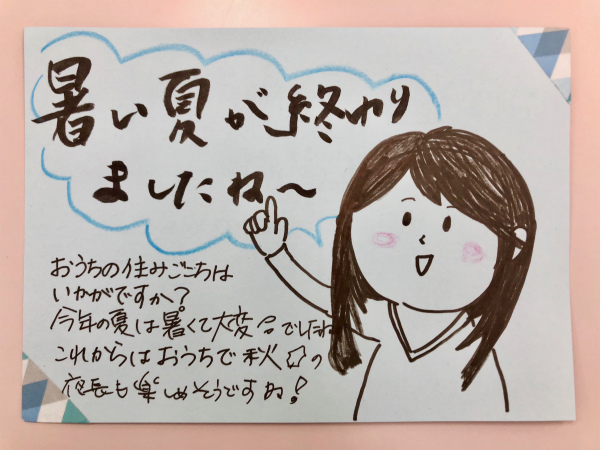 暑い夏が終わり
ましたね〜
おうちの住みごこちは
いかがですか?
今年の夏は暑くて大変でしたね
これからはおうちで秋☆の
夜長も楽しめそうですね!